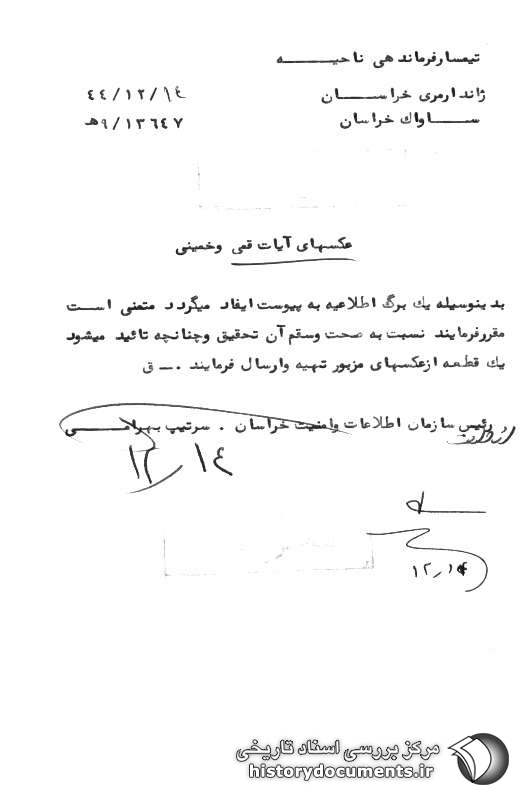 تیمسار فرماندهی ناحیه
ژاندارمری خراسان ۴۴/۱۲/۱۴
ساواک خراسان ۹/۱۳۶۴۷ﻫ
عکسهای آیات قمی وخمینی
بدینوسیله یک برگ اطلاعیه به پیوست ایفاد میگردد متمنی است
مقررفرمایند نسبت به صحت وسقم آن تحقیق وچنانچه تائید میشود
یک قطعه ازعکسهای مزبور تهیه وارسال فرمایند . ـ ق
رئیس سازمان اطلاعات وامنیت خراسان . سرتیپ بهرامی
۱۲/۱۴
۱۲/۱۴
مرکز بررسی اسناد تاریخی
historydocuments.ir